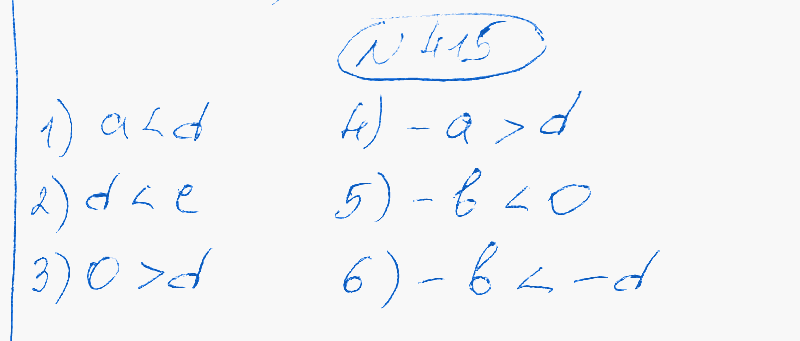 N 415
1) a < d 4) - a > d
2) d < c 5) - b < 0
3) 0 > d 6) - b < - d